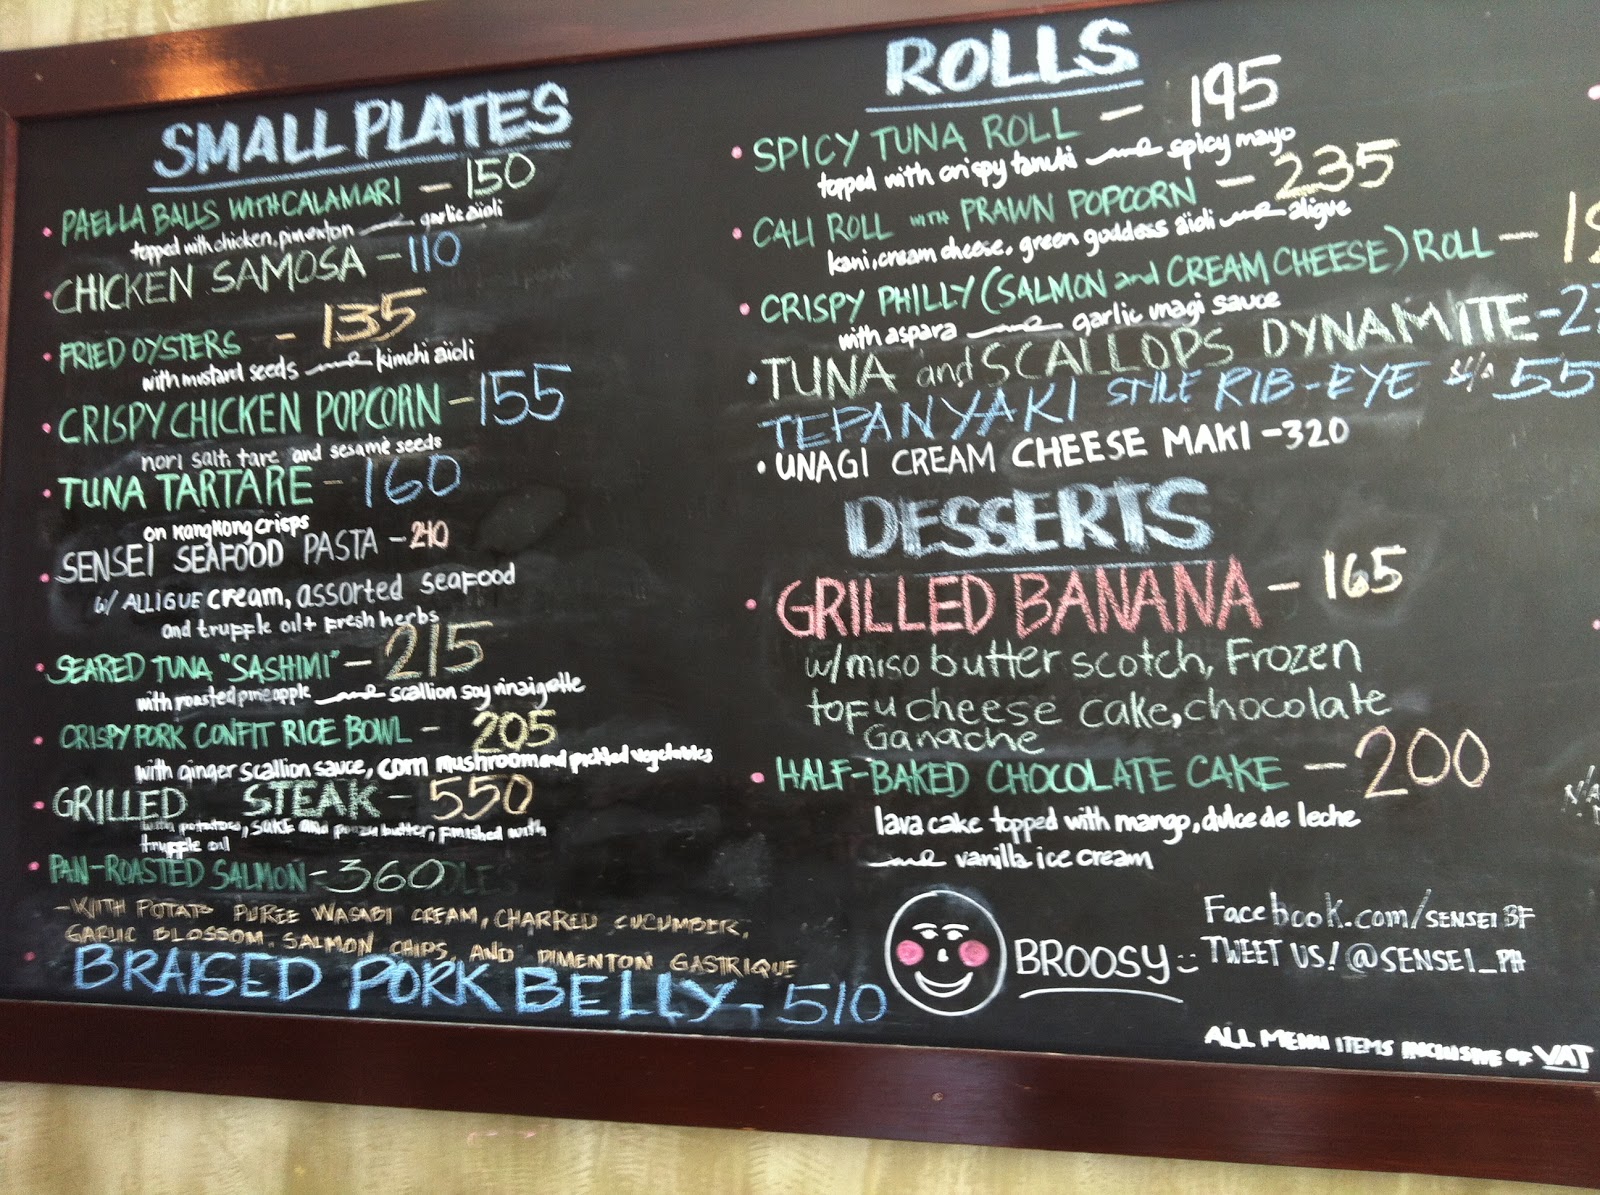 SMALL PLATES
PAELLA BALLS WITH CALAMARI - 150
topped with chicken, pimenton and garlic aioli
CHICKEN SAMOSA - 110
FRIED OYSTERS - 135
with mustard seeds and kimchi aioli
CRISPY CHICKEN POPCORN - 155
nori salt, tare and sesame seeds
TUNA TARTARE - 160
on kangkong crisps
SENSEI SEAFOOD PASTA - 240
w/ ALLIGUE cream, assorted seafood
and truffle oil + fresh herbs
SEARED TUNA "SASHIMI" - 215
with roasted pineapple and scallion soy vinaigrette
CRISPY PORK CONFIT RICE BOWL - 205
with ginger scallion sauce, corn mushroom and pickled vegetables
GRILLED STEAK - 550
with potatoes, sake and ponzu butter, finished with
truffle oil
PAN-ROASTED SALMON - 360
- WITH POTATO PUREE WASABI CREAM, CHARRED CUCUMBER,
GARLIC BLOSSOM, SALMON CHIPS, AND PIMENTON GASTRIQUE
BRAISED PORK BELLY - 510
ROLLS
SPICY TUNA ROLL - 195
topped with crispy tanuki and spicy mayo
CALI ROLL WITH PRAWN POPCORN - 235
kani, cream cheese, green goddess aioli and aligue
CRISPY PHILLY (SALMON and CREAM CHEESE) ROLL -
with aspara and garlic unagi sauce
TUNA and SCALLOPS DYNAMITE -
TEPANYAKI STYLE RIB-EYE 55
UNAGI CREAM CHEESE MAKI - 320
DESSERTS
GRILLED BANANA - 165
w/ miso butter scotch, Frozen
tofu cheese cake, chocolate
Ganache
HALF-BAKED CHOCOLATE CAKE - 200
lava cake topped with mango, dulce de leche
and vanilla ice cream
BROOSY
Facebook.com/SENSEIBF
TWEET US! @SENSEI_PH
ALL MENU ITEMS INCLUSIVE OF VAT